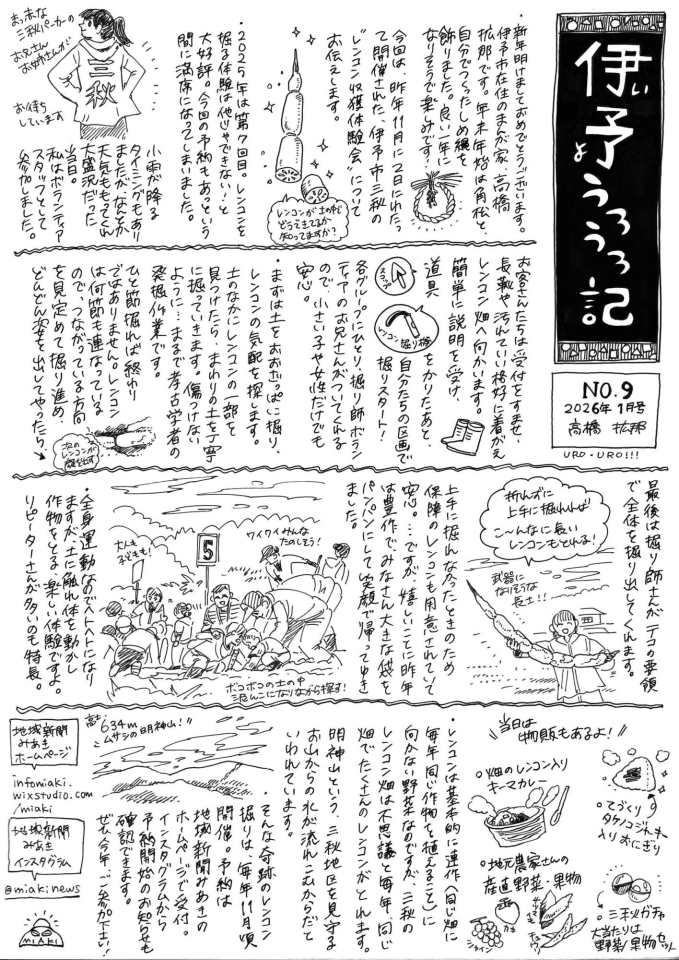 伊予うろうろ記
い
よ
NO.9
2026年 1月号
高橋 拡那
URO・URO!!!
・新年明けましておめでとうございます。
伊予市在住のまんが家、高橋
拡那です。年末年始は角松と、
自分でつくったしめ縄を
飾りました。良い一年に
なりそうで楽しみです！
今回は、昨年11月に2日にわたっ
て開催された、伊予市三秋の
“レンコン収穫体験会”について
お伝えします。
レンコンが土の中で
どう生きてるか
知ってますか？
・2025年は第7回目。レンコンを
掘る体験は他じゃできない！と
大好評。今回の予約もあっという
間に満席になってしまいました。
小雨が降る
タイミングもあり
ましたが、なんとか
天気ももってくれ
大盛況だった
当日。
私はボランティア
スタッフとして
参加しました。
まっ赤な
三秋パーカーの
お兄さん
お姉さんが
お待ち
しています
三秋
お客さんたちは受付をすませ、
長靴や汚れていい格好に着がえ
レンコン畑へ向かいます。
簡単に説明を受け、
道具
スコップ
レンコン掘り棒
をかりたあと、
自分たちの区画で
掘りスタート！
各グループにひとり、掘り師ボラン
ティアのお兄さんがついてくれる
ので、小さい子や女性だけでも
安心。
・まずは土をおおざっぱに掘り、
レンコンの気配を探します。
土のなかにレンコンの一部を
見つけたら、まわりの土を丁寧
に掘っていきます。傷つけない
ように…まるで考古学者の
発掘作業です。
ひと節掘れば終わり
ではありません。レンコン
は何節も連なっている
ので、つながっている方向
を見定めて掘り進め、
どんどん姿を出してやったら、
次の
レンコンが
顔を出す
最後は掘り師さんがテコの要領
で全体を掘り出してくれます。
折れずに
上手に掘れれば
こ〜んなに長い
レンコンもとれる！
武器に
なりそうな
長さ！！
上手に掘れなかったときのため
保障のレンコンも用意されていて
安心。…ですが、嬉しいことに昨年
は豊作で、みなさん大きな袋を
パンパンにして笑顔で帰ってゆき
ました。
ワイワイみんな
たのしそう！
大人も
子どもも！
5
ボコボコの土の中
泥んこになりながら探す！
・全身運動なのでヘトヘトになり
ますが、土に触れ体を動かし
作物をとる、楽しい体験ですよ。
リピーターさんが多いのも特長。
当日は
物販もあるよ！
・畑のレンコン入り
キーマカレー
・てづくり
タケノコジャーキー
入りおにぎり
・地元農家さんの
産直野菜・果物
カブ
シャイン
・三秋ガチャ
大当たりは
野菜/果物セット
・レンコンは基本的に連作（同じ畑に
毎年同じ作物を植えること）に
向かない野菜なのですが、三秋の
レンコン畑は不思議と毎年、同じ
畑でたくさんのレンコンがとれます。
明神山という、三秋地区を見守る
お山からの水が流れこむからだと
いわれています。
高さ634m
ムサシの日明神山！
・そんな奇跡のレンコン
掘りは、毎年11月頃
開催。予約は
地域新聞みあきの
ホームページで受付。
インスタグラムから
予約開始のお知らせも
確認できます。
ぜひ今年、ご参加下さい！
地域新聞
みあき
ホームページ
infomiaki.
wixstudio.com
/miaki
地域新聞
みあき
インスタグラム
@miakinews
MIAKI